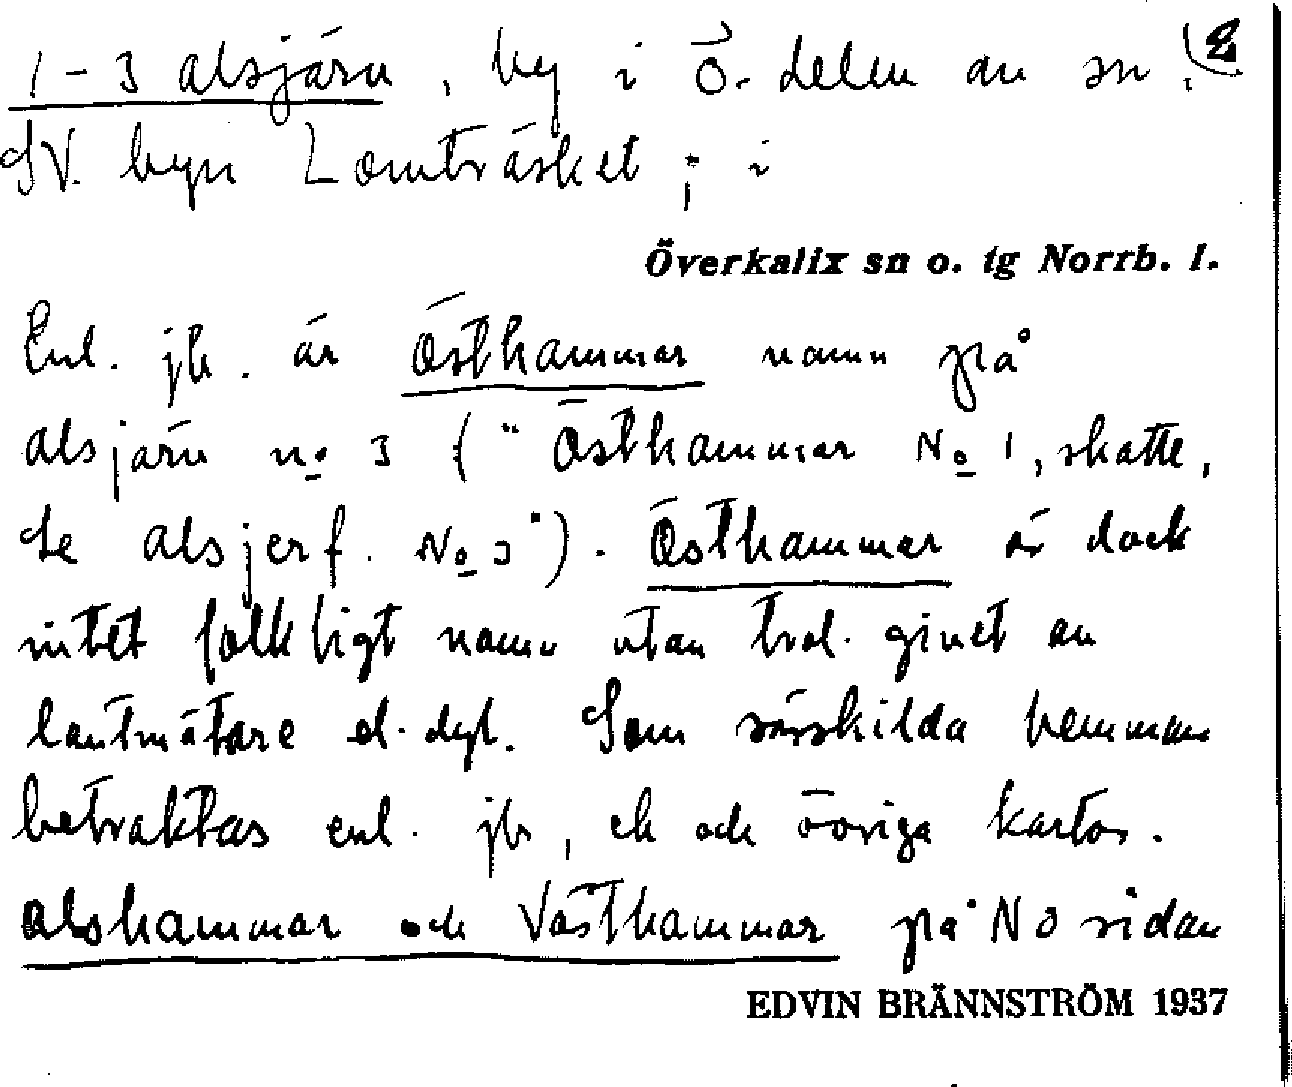 1-3 alsjärv, by i Ö. delen av sn. 2
SV. byn Lomträsket; i
Överkalix sn o. tg Norrb. l.
Enl. jb. är Östhammar namn på
alsjärv no 3 ("Östhammar No 1, skatte,
Se alsjerf. No 3"). Östhammar är dock
intet folkligt namn utan trol. givet av
lantmätare el. dyl. Som särskilda hemman
betraktas enl. jb, ek och övriga kartor.
alshammar och Västhammar på NO sidan
EDVIN BRÄNNSTRÖM 1937